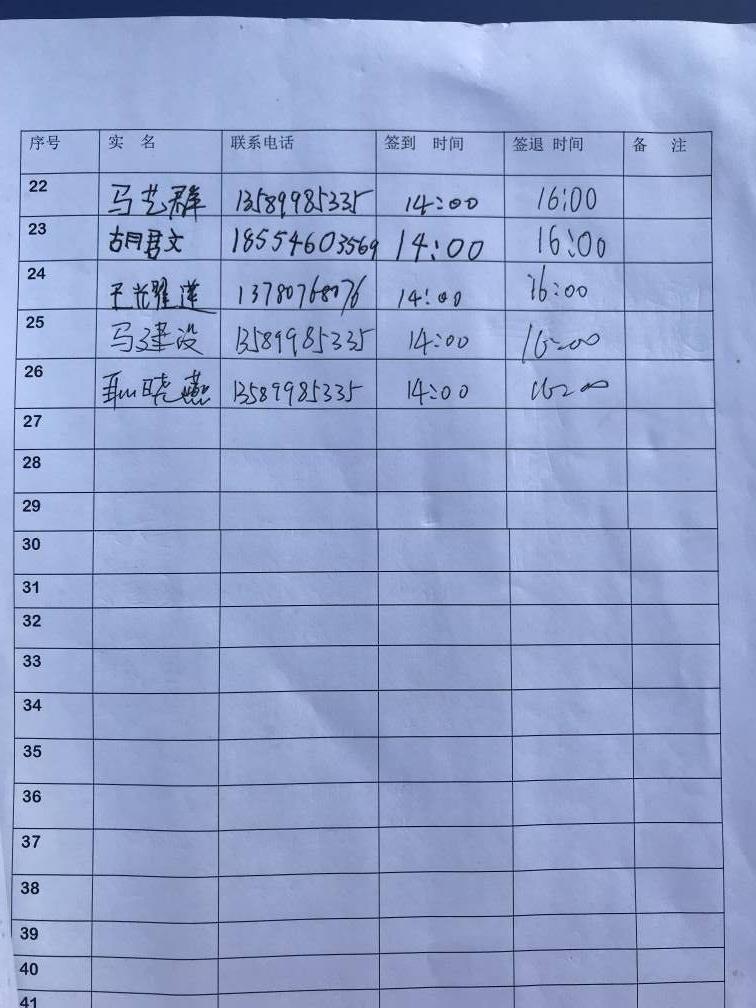 序号 实 名 联系电话 签到 时间 签退 时间 备 注
22 马艺群 13589985335 14:00 16:00
23 胡君文 18554603569 14:00 16:00
24 13780768076 14:00 16:00
25 马建设 13589985335 14:00 16:00
26 晓燕 13589985335 14:00 16:00
27
28
29
30
31
32
33
34
35
36
37
38
39
40
41